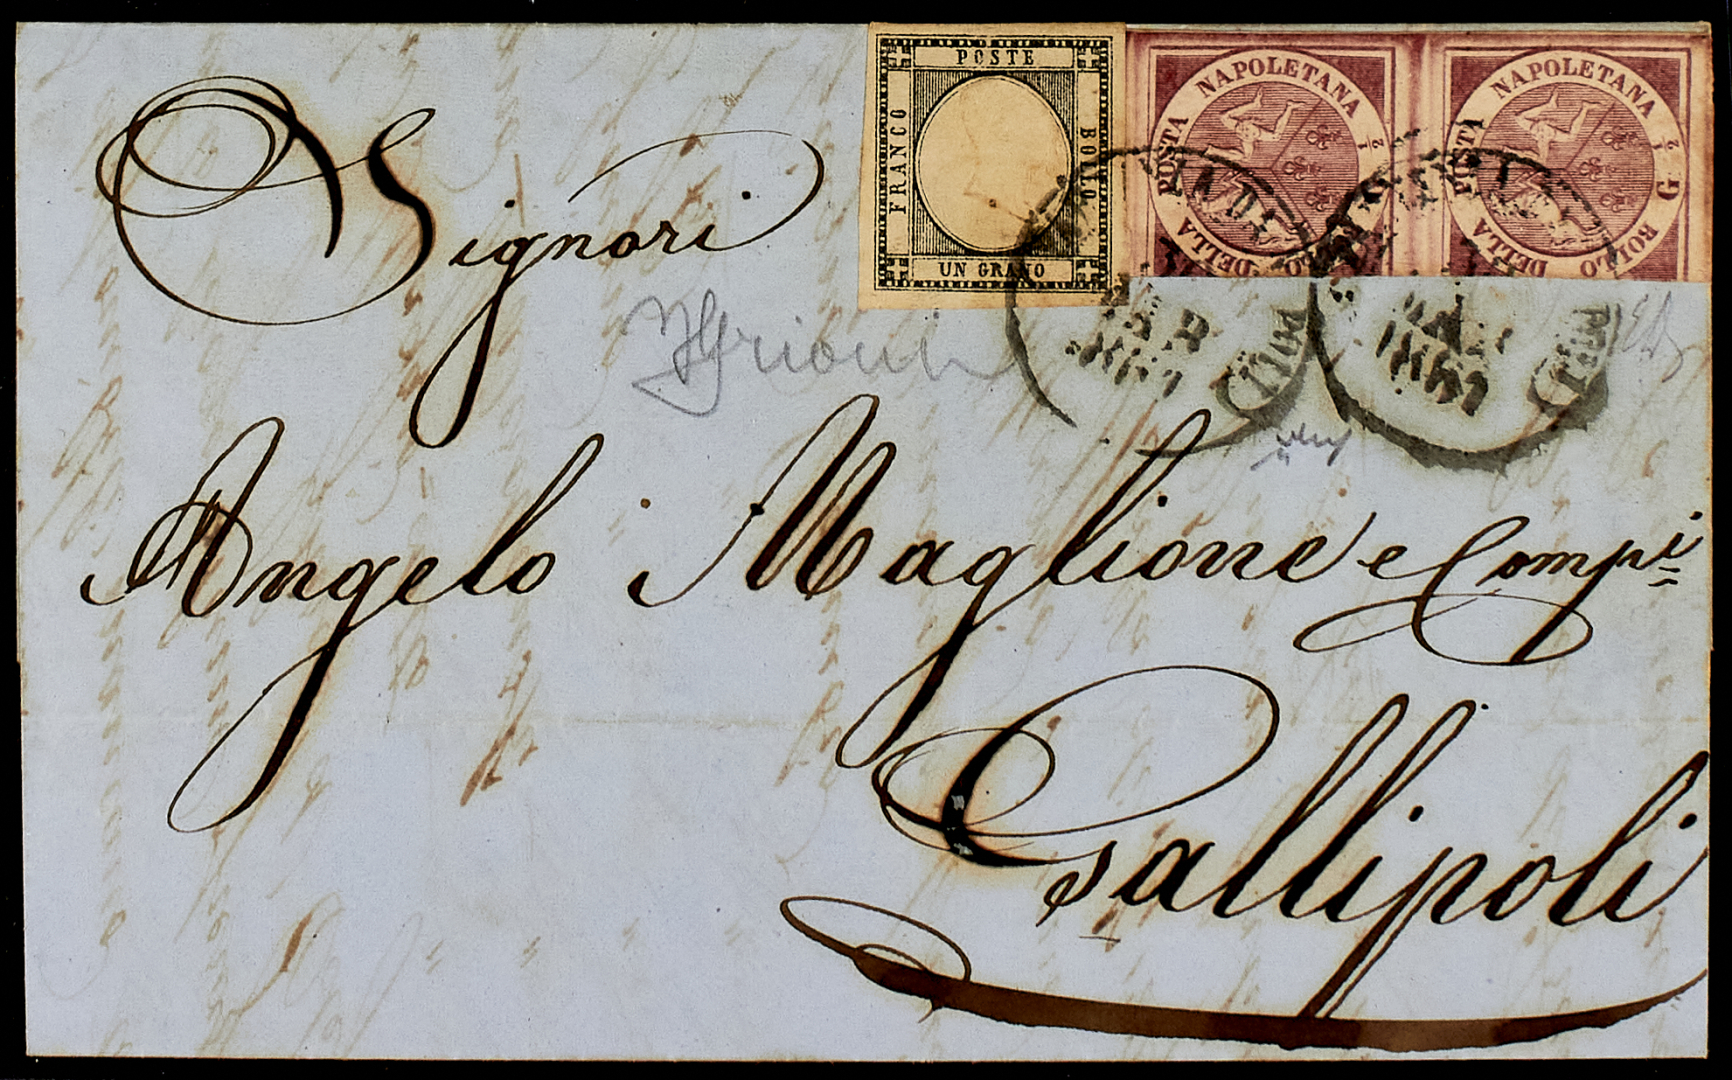 POSTE
FRANCO
BOLLO
UN GRANO
POSTA NAPOLETANA ½ G
BOLLO DELLA
POSTA NAPOLETANA ½ G
BOLLO DELLA
Signori
1861
1861
Angelo Maglione e Comp.i
Gallipoli